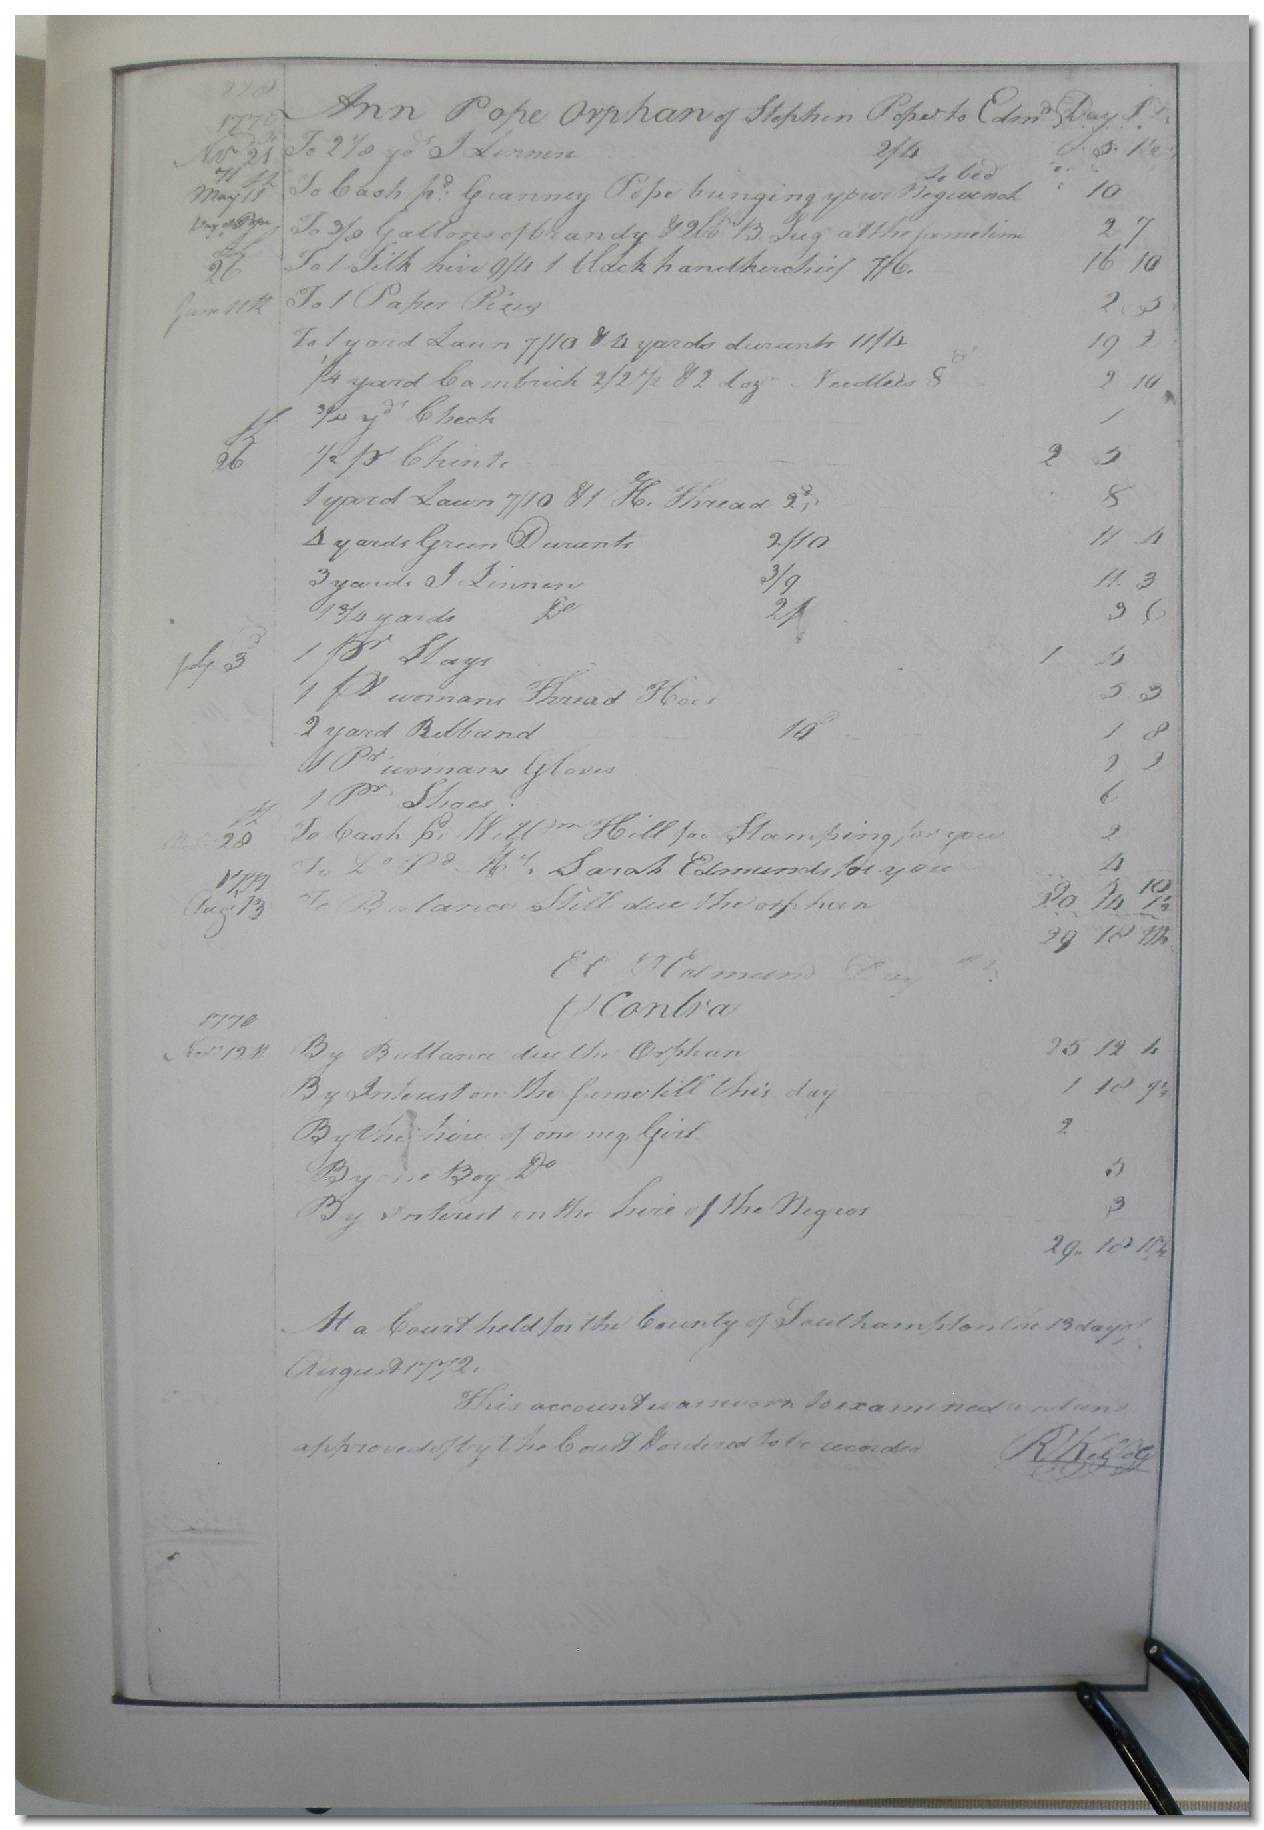 1770
Ann Pope Orphan of Stephen Pope to Edmd Day
Nov 21 To 2 1/2 yds I Linnen 2/4 5
to bed
71 May 11 To Cash pd. Granney Pope bringing your Negwench 10
To 3/8 Gallons of brandy & 2 lb B. Sug at the same time 2 7
26 To 1 Silk hive 9/4 1 black handkerchief 7/6. 16 10
June 11th To 1 Paper Pins
To 1 yard Lawn 7/10 & 4 yards durants 11/4 19 2
1/4 yard Cambrick 2/2 1/2 & 2 doz Needles 8d 2 10
3/4 yds Check 1
26 1/2 ps Chints 2 5
1 yard Lawn 7/10 & 1 H. Thread 2d 8
4 yards Green Durants 2/10 11 4
3 yards I Linnen 3/9 11 3
1 3/4 yards Do 2/ 3 6
July 3d 1 pr Stays 1 4
1 pr womans Thread Hoes
2 yard Ribband 10d 1 8
1 Pr womans Gloves 2
1 Pr Shoes 6
28 To Cash pd. Willm Hill for Stamping for you 2
To Do Pd Mrs. Sarah Edmunds for you 4
1772
Augt 13 To Ballance Still due the orphan
29 18
Edmund Day
Contra
1770
Novr 19th By Ballance due the Orphan 25 12 4
By Interest on the same till this day 1 18
By the hire of one neg. Girl 2
By one Boy Do 5
By Interest on the hire of the Negros 3
29 18
At a Court held for the County of Southampton the 13 day of
August 1772.
This account was sworn to examined
approved of by the Court & ordered to be recorded